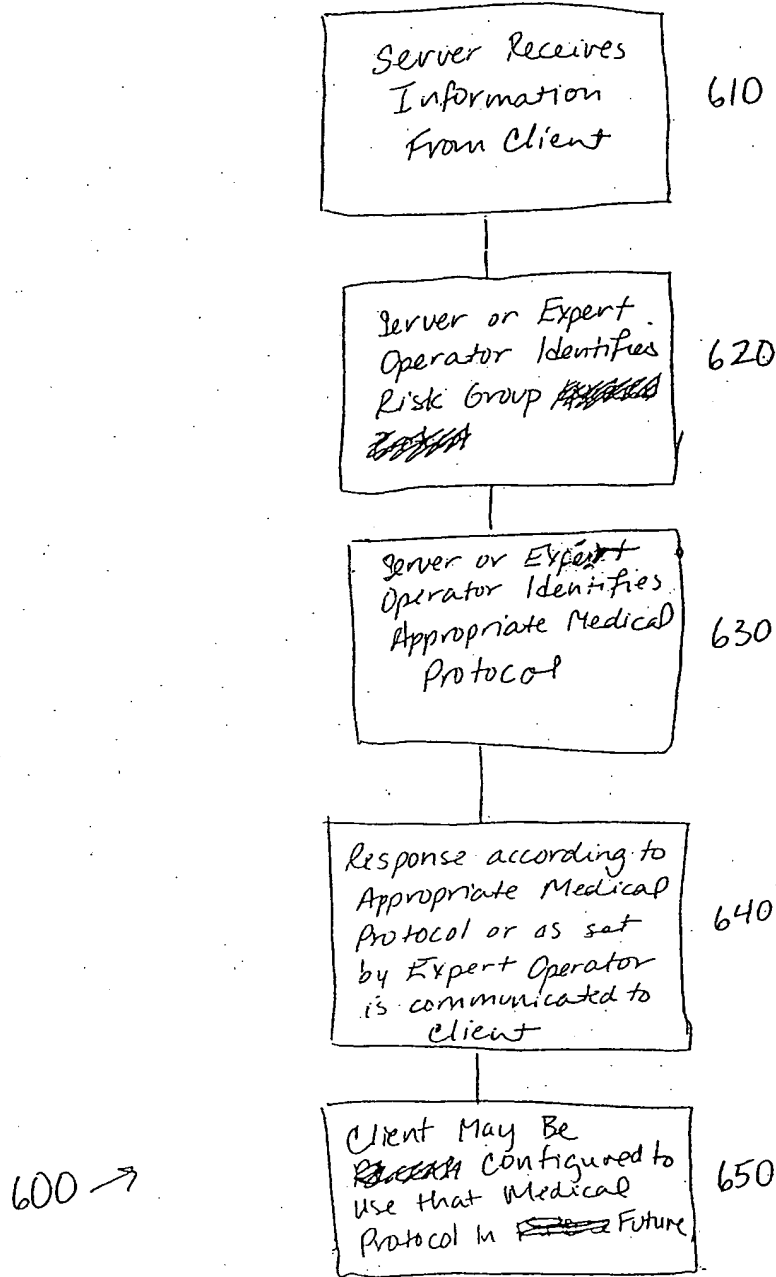 Server Receives
Information
From Client
610
Server or Expert
Operator Identifies
Risk Group
620
Server or Expert
Operator Identifies
Appropriate Medical
Protocol
630
Response according to
Appropriate Medical
Protocol or as set
by Expert Operator
is communicated to
Client
640
Client May Be
Configured to
use that Medical
Protocol In Future
650
600